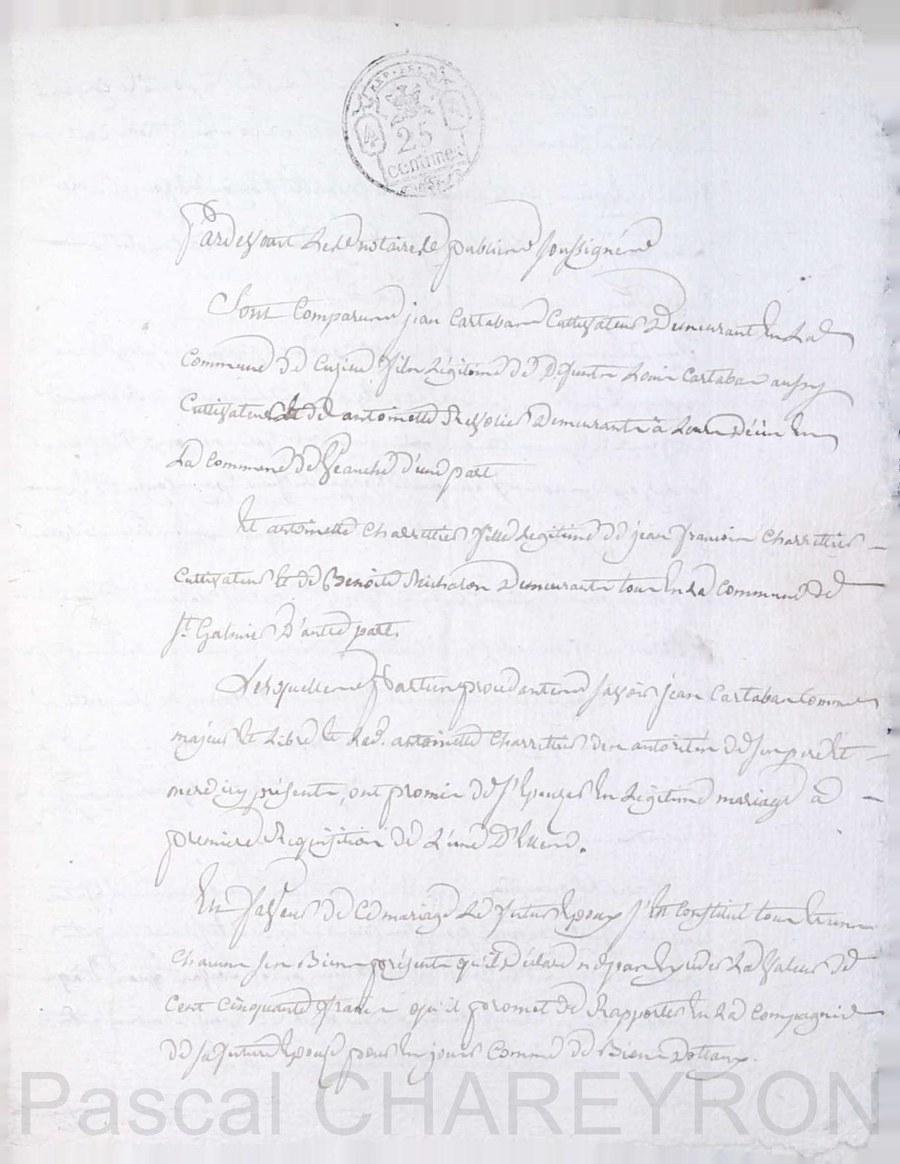 REP. FRA.
25
centimes
Pardevant Le notaire public soussigné
Sont Comparus jean Cartaban Cultivateur Demeurant En La
Commune de Cuzieu fils Légitime de Defunt Louis Cartaban aussy
Cultivateur et de antoinette Demeurante à En
La Commune de Veauche d'une part
Et antoinette Charettier fille Légitime de jean françois Charrettier
Cultivateur Et de Benoite Demeurants tous En La Commune de
St. Galmier D'autre part.
Lesquelles Parties procedantes savoir jean Cartaban Comme
majeur Et Libre Et Lad. antoinette Charrettier de autorités de ses pere Et
mere icy présents, ont promis de s'Epouzer En Légitime mariage a
premiere Requisition de L'une D'Elles.
En faveur de Ce mariage Le futur Epoux s'Est Constitué tous Et uns
Chacuns ses Biens présents qu'il Déclare ne pas Exceder La Valeur de
Cent Cinquante francs qu'il promet de Rapporter En La Compagnie
de sa future Epouse pour En jouir Comme de Biens Dotaux.
Pascal CHAREYRON